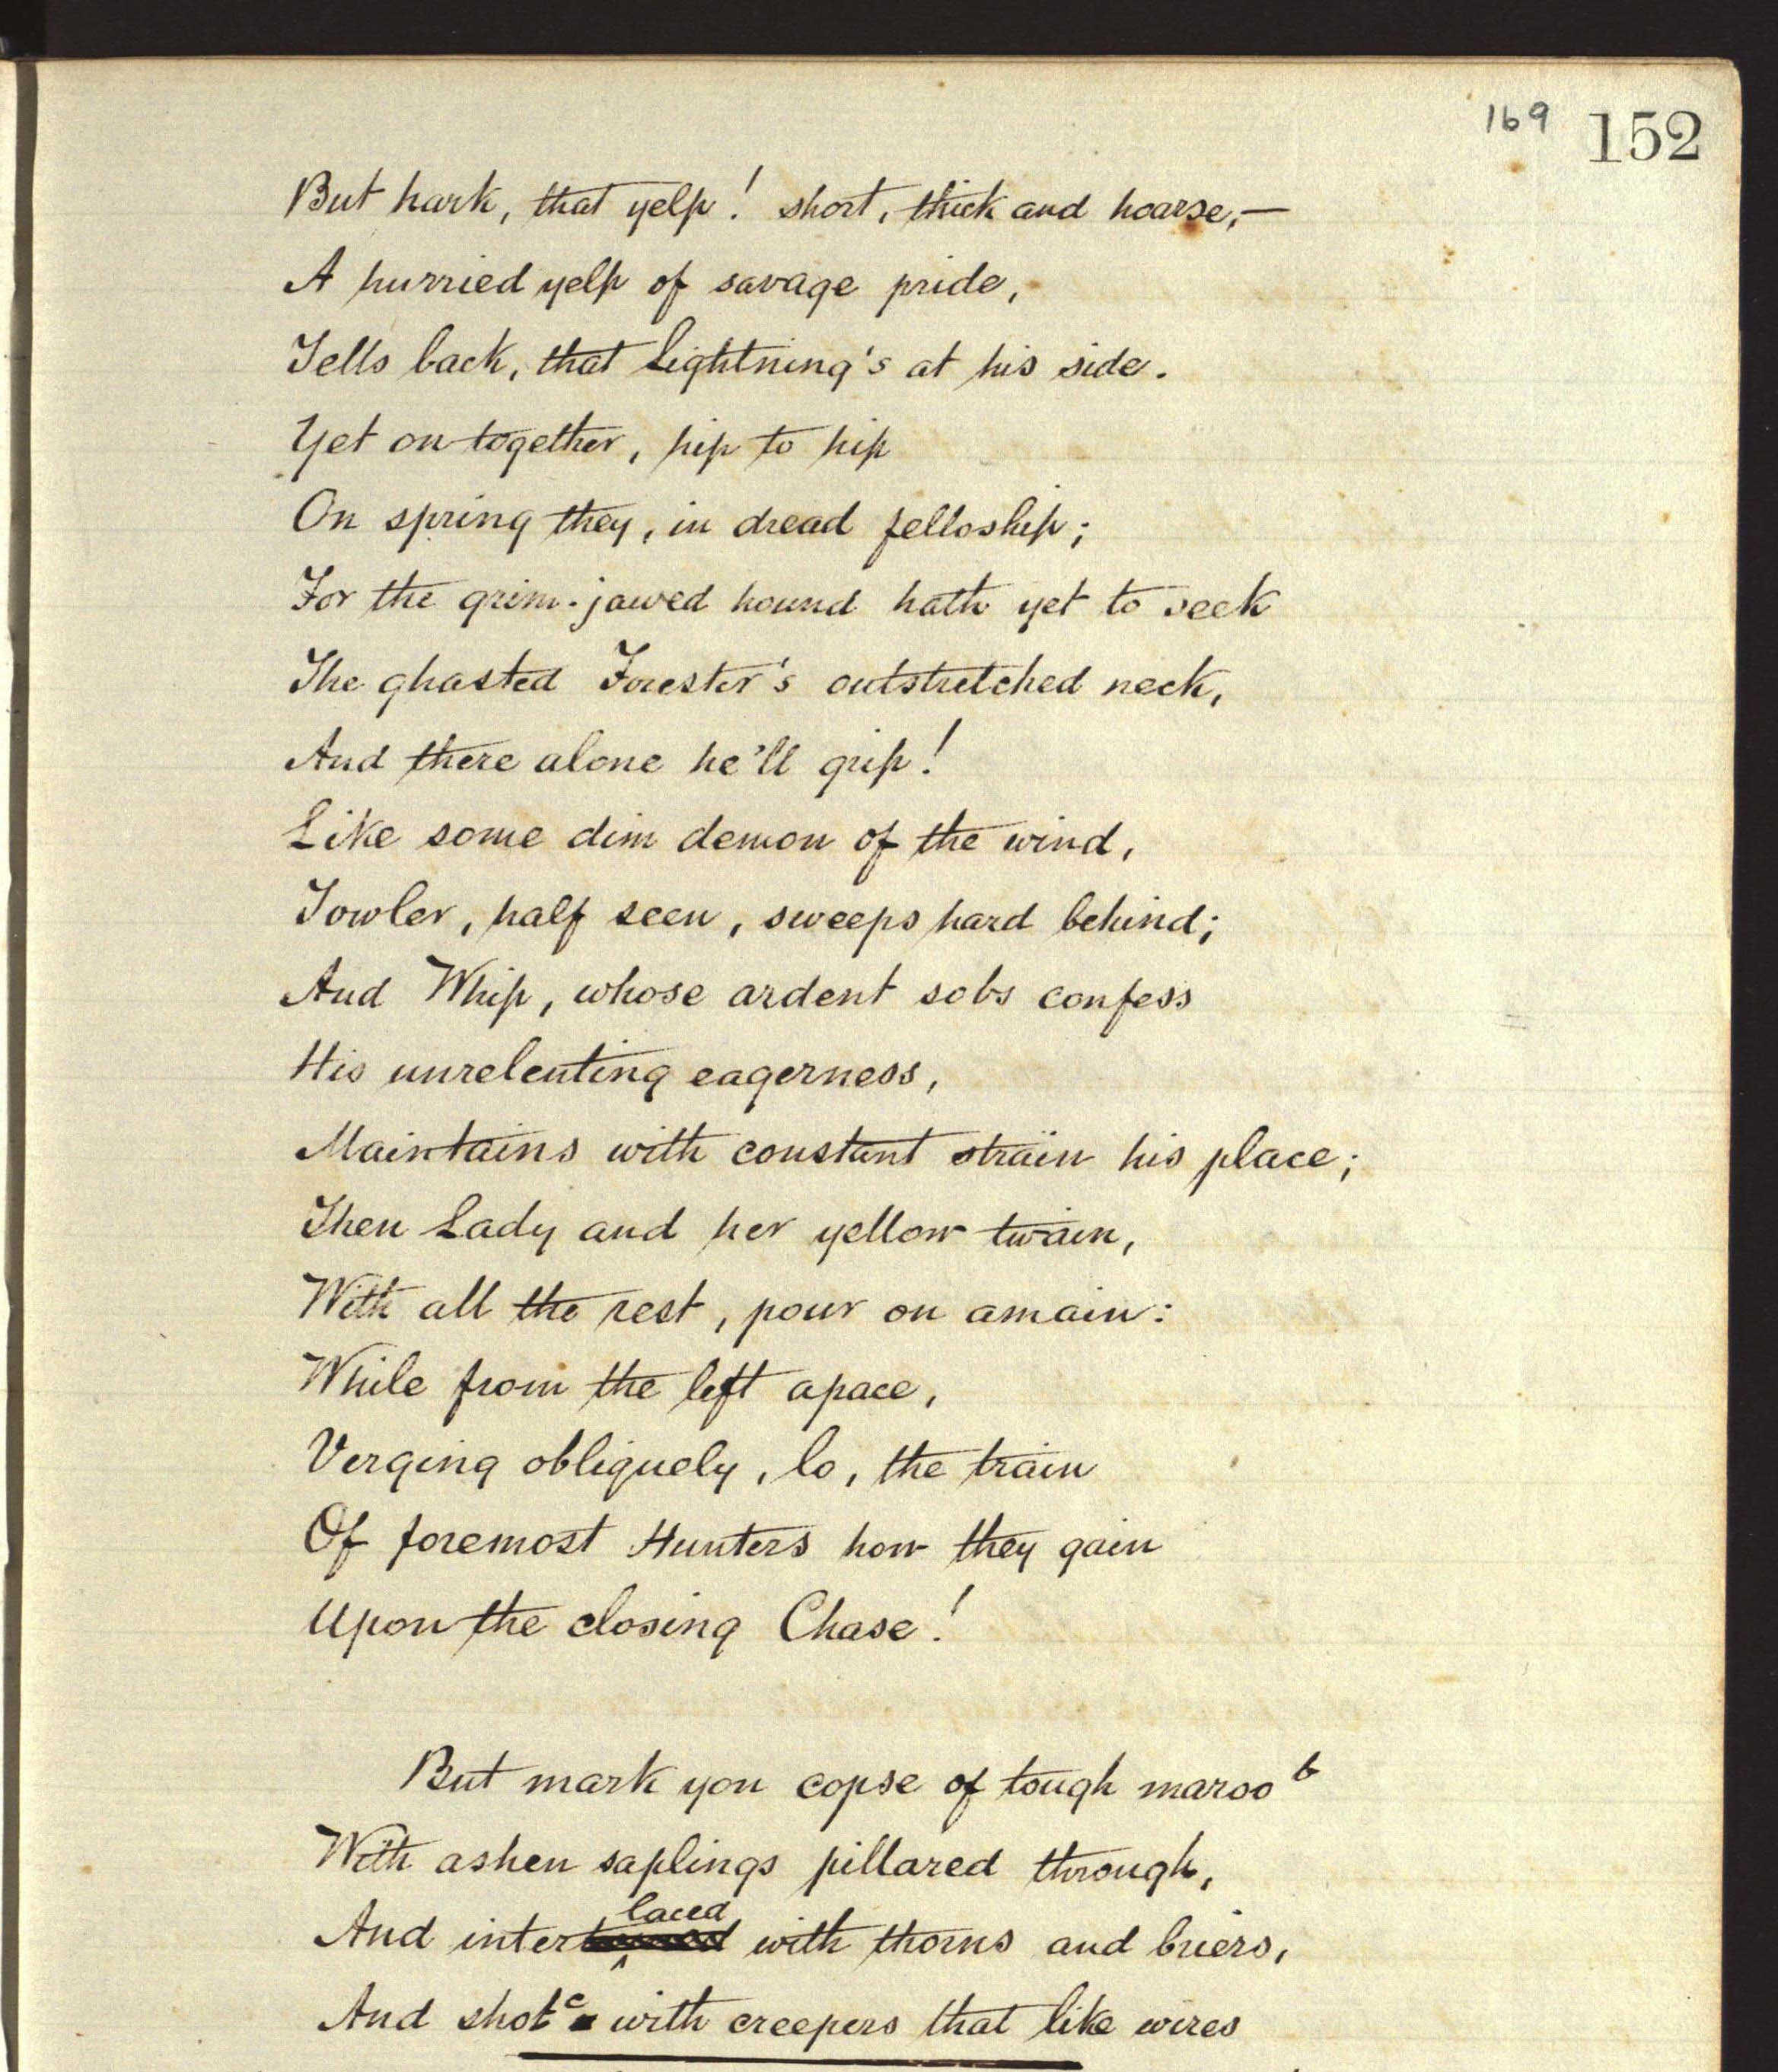 169 152
But hark, that yelp! short, thick and hoarse,—
A hurried yelp of savage pride,
Tells back, that Lightning's at his side.
Yet on together, hip to hip
On spring they, in dread felloship;
For the grim-jawed hound hath yet to seek
The ghasted Forester's outstretched neck,
And there alone he'll grip!
Like some dim demon of the wind,
Towler, half seen, sweeps hard behind;
And Whip, whose ardent sobs confess
His unrelenting eagerness,
Maintains with constant strain his place;
Then Lady and her yellow twain,
With all the rest, pour on amain:
While from the left apace,
Verging obliquely, lo, the train
Of foremost Hunters how they gain
Upon the closing Chase!
But mark yon copse of tough maroo b
With ashen saplings pillared through,
laced
And inter with thorns and briers,
And shot c with creepers that like wires